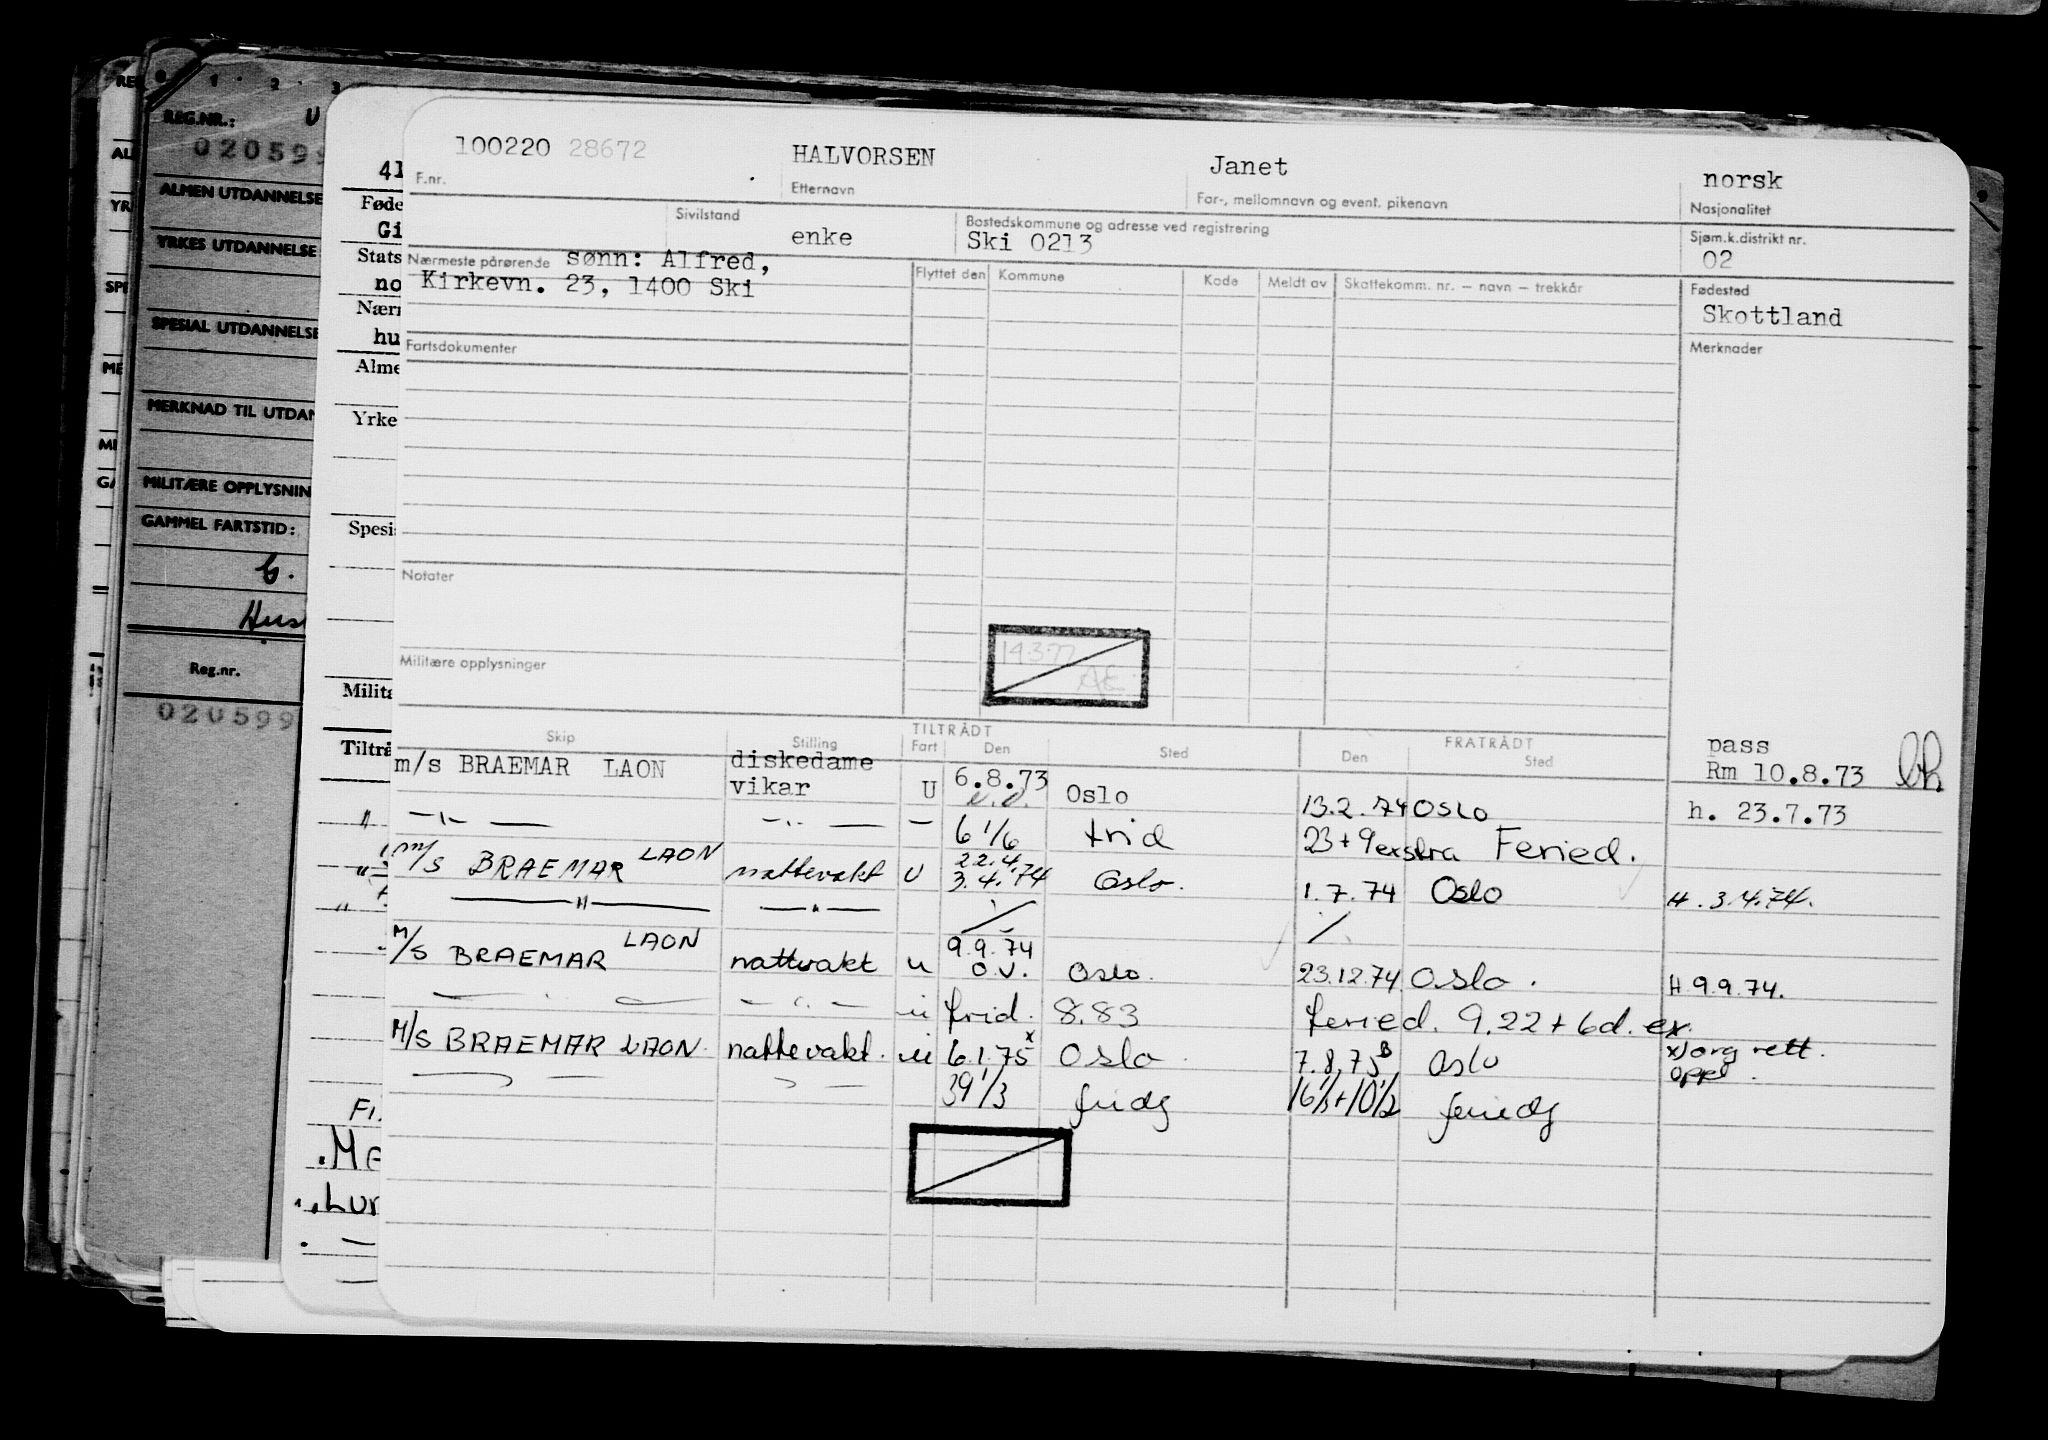 100220 28672 HALVORSEN Janet norsk
F.nr. Etternavn For-, mellomnavn og event. pikenavn Nasjonalitet
Sivilstand Bostedskommune og adresse ved registrering Sjøm.k.distrikt nr.
enke Ski 0213 02
Nærmeste pårørende sønn: Alfred, Flyttet den Kommune Kode Meldt av Skattekomm. nr. – navn – trekkår Fødested
Kirkevn. 23, 1400 Ski Skottland
Fartsdokumenter Merknader
Notater
14377
Militære opplysninger
TILTRÅDT FRATRÅDT
Skip Stilling Fart Den Sted Den Sted
m/s BRAEMAR LAON diskedame vikar U 6.8.73 Oslo 13.2.74 OSLO pass
Rm 10.8.73
h. 23.7.73
6 1/6 frid 23+9 Feried.
m/s BRAEMAR LAON nattevakt U 22.4. 3.4.74 Oslo. 1.7.74 Oslo H. 3.4.74.
— " — — " —
M/S BRAEMAR LAON nattvakt u 9.9.74 O.V. Oslo. 23.12.74 Oslo. H 9.9.74.
frid. 8.83 feried. 9.22+6d. ex.
M/S BRAEMAR LAON. nattevakt. u 6.1.75 x Oslo. 7.8.75 B Oslo x) org rett. oppl.
39 1/3 fridg 16 1/3+10 1/2 feriedg
REG.NR.: U
0 1 2 3
020599
ALMEN UTDANNELSE
YRKES UTDANNELSE
SPESIAL UTDANNELSE
MERKNAD TIL UTDAN
MILITÆRE OPPLYSNIN
GAMMEL FARTSTID:
6.
Hus
Reg.nr.
020599
41
Føde
Gi
Stats
no
Nær
hu
Alme
Yrke
Spesi
Milit
Tiltrå
FI.
.MA
LUR